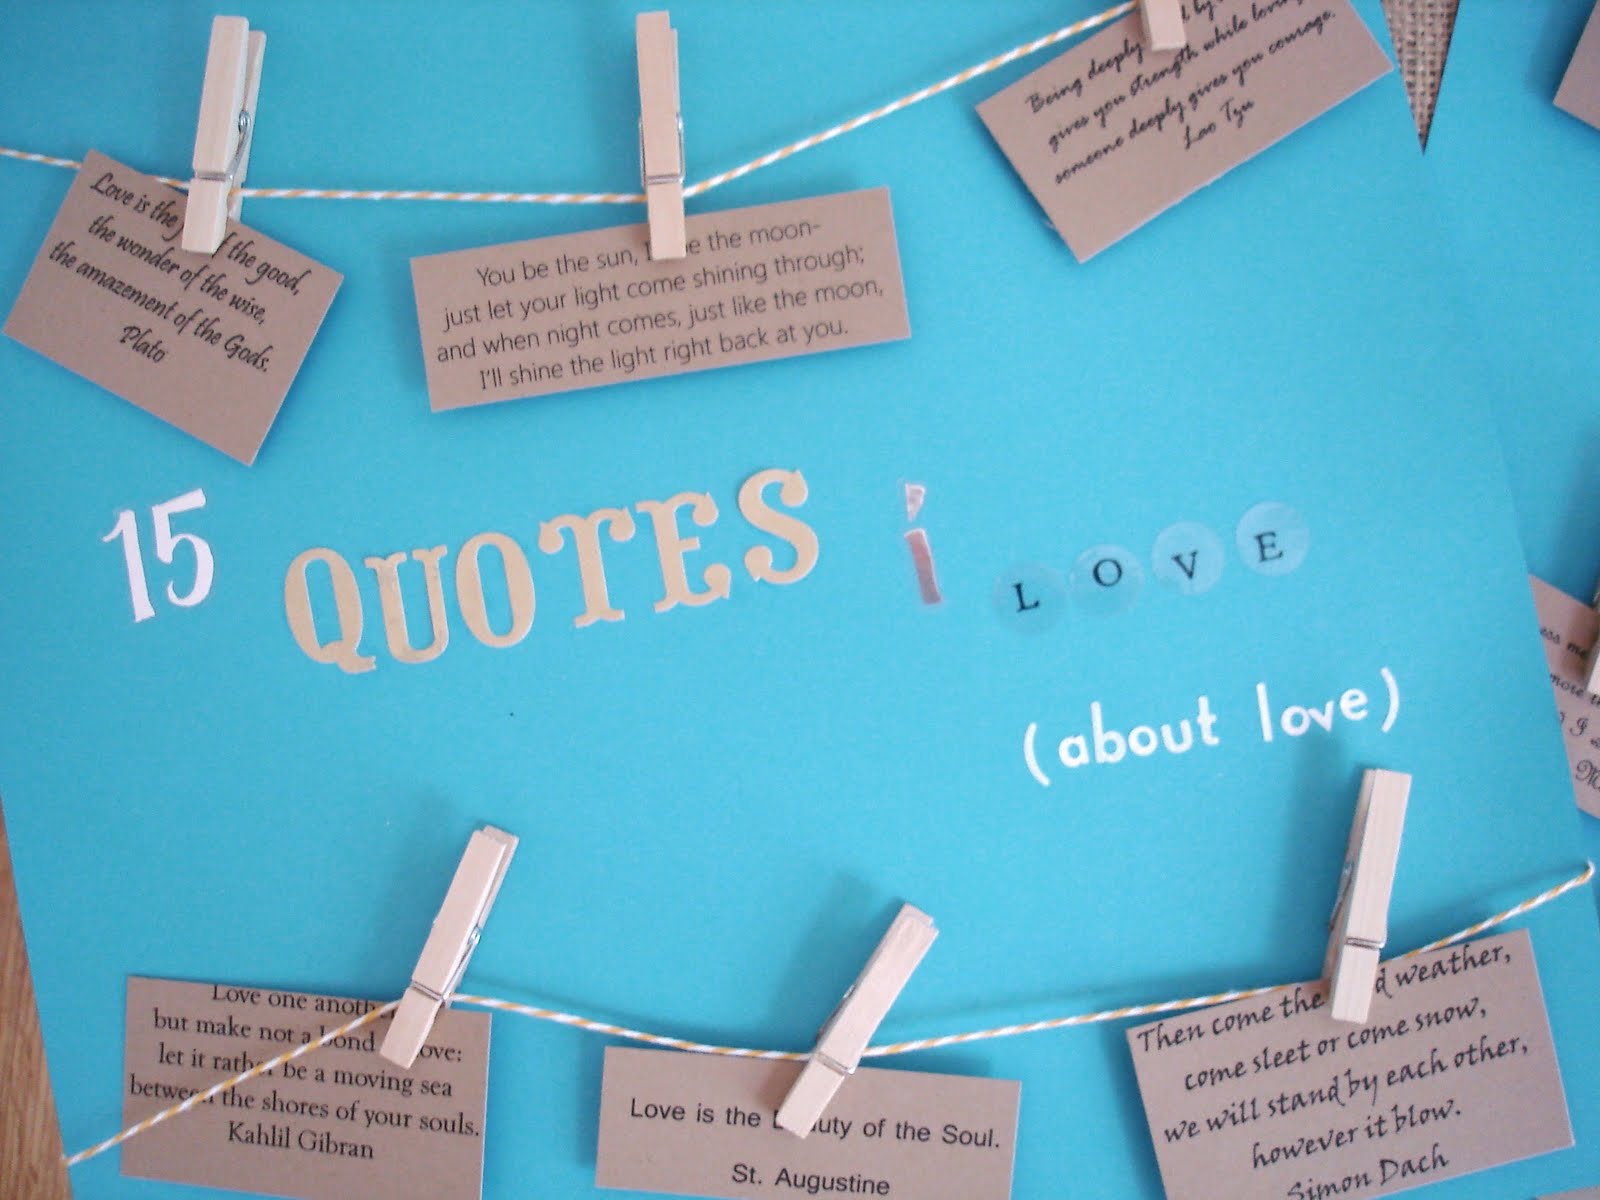 Love is the of the good,
the wonder of the wise,
the amazement of the Gods.
Plato
You be the sun, be the moon-
just let your light come shining through;
and when night comes, just like the moon,
I'll shine the light right back at you.
Being deeply by
gives you strength while loving
someone deeply gives you courage.
Lao Tzu
15 QUOTES i LOVE
(about love)
me
more
I
Love one
but make not a bond
let it rather be a moving sea
between the shores of your souls.
Kahlil Gibran
Love is the Beauty of the Soul.
St. Augustine
Then come the weather,
come sleet or come snow,
we will stand by each other,
however it blow.
Simon Dach